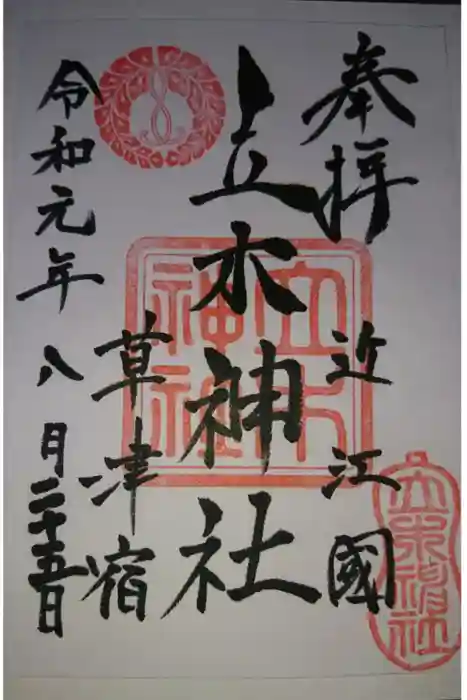 奉拝
近江國
立木神社
草津宿
令和元年八月二十五日
立木神社
立木神社